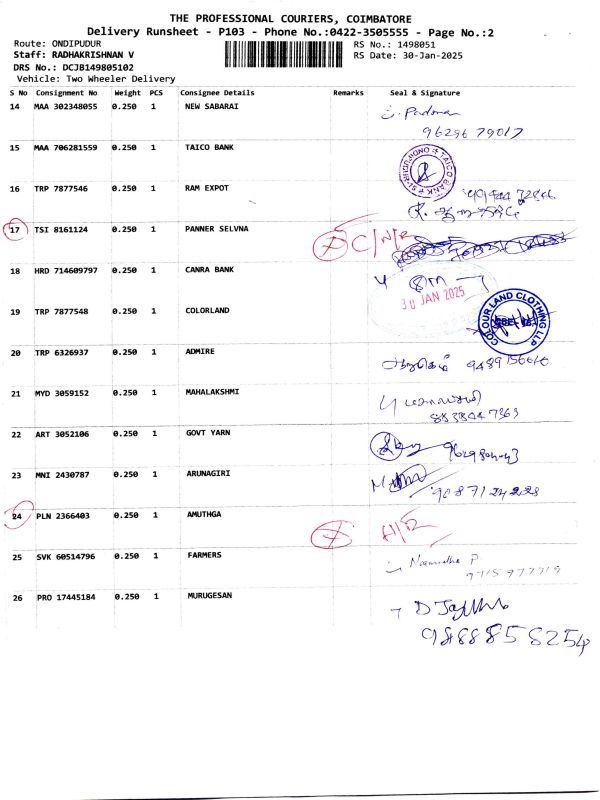 THE PROFESSIONAL COURIERS, COIMBATORE
Delivery Runsheet - P103 - Phone No.:0422-3505555 - Page No.:2
Route: ONDIPUDUR RS No.: 1498051
Staff: RADHAKRISHNAN V RS Date: 30-Jan-2025
DRS No.: DCJB149805102
Vehicle: Two Wheeler Delivery
S No Consignment No Weight PCS Consignee Details Remarks Seal & Signature
14 MAA 302348055 0.250 1 NEW SABARAI
96296 79017
15 MAA 706281559 0.250 1 TAICO BANK
TAICO BANK
16 TRP 7877546 0.250 1 RAM EXPOT
17 TSI 8161124 0.250 1 PANNER SELVNA C/N/R
18 HRD 714609797 0.250 1 CANRA BANK
30 JAN 2025
19 TRP 7877548 0.250 1 COLORLAND
COLOUR LAND CLOTHING LLP
20 TRP 6326937 0.250 1 ADMIRE
21 MYD 3059152 0.250 1 MAHALAKSHMI
22 ART 3052106 0.250 1 GOVT YARN
23 MNI 2430787 0.250 1 ARUNAGIRI
24 PLN 2366403 0.250 1 AMUTHGA
25 SVK 60514796 0.250 1 FARMERS
26 PRO 17445184 0.250 1 MURUGESAN
9488858254